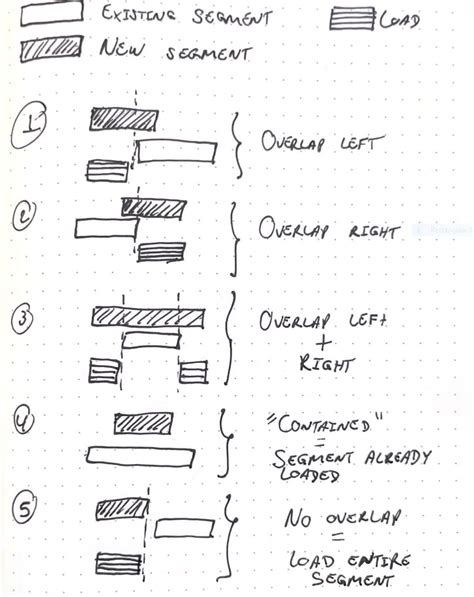 EXISTING SEGMENT
LOAD
NEW SEGMENT
1
OVERLAP LEFT
2
OVERLAP RIGHT
3
OVERLAP LEFT
+
RIGHT
4
"CONTAINED"
=
SEGMENT ALREADY
LOADED
5
NO OVERLAP
=
LOAD ENTIRE
SEGMENT